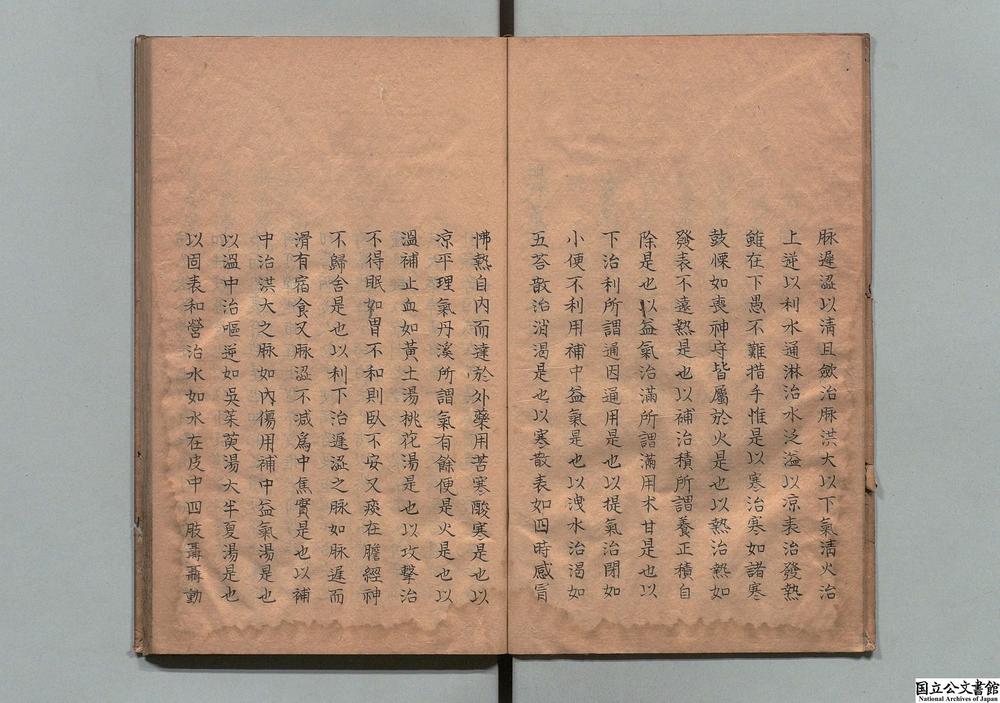 脉遲澁以清且斂治脉洪大以下氣清火治
上逆以利水通淋治水泛溢以凉表治發熱
雖在下愚不難措手惟是以寒治寒如諸寒
鼓慄如喪神守皆屬於火是也以熱治熱如
發表不遠熱是也以補治積所謂養正積自
除是也以益氣治滿所謂滿用术甘是也以
下治利所謂通因通用是也以提氣治閉如
小便不利用補中益氣是也以洩水治渴如
五苓散治消渴是也以寒散表如四時感冒
怫熱自內而達於外藥用苦寒酸寒是也以
凉平理氣丹溪所謂氣有餘便是火是也以
溫補止血如黃土湯桃花湯是也以攻擊治
不得眠如胃不和則臥不安又痰在膽經神
不歸舍是也以利下治遲澁之脉如脉遲而
滑有宿食又脉澁不減為中焦實是也以補
中治洪大之脉如內傷用補中益氣湯是也
以溫中治嘔逆如吳茱萸湯大半夏湯是也
以固表和營治水如水在皮中四肢聶聶動
国立公文書館
National Archives of Japan